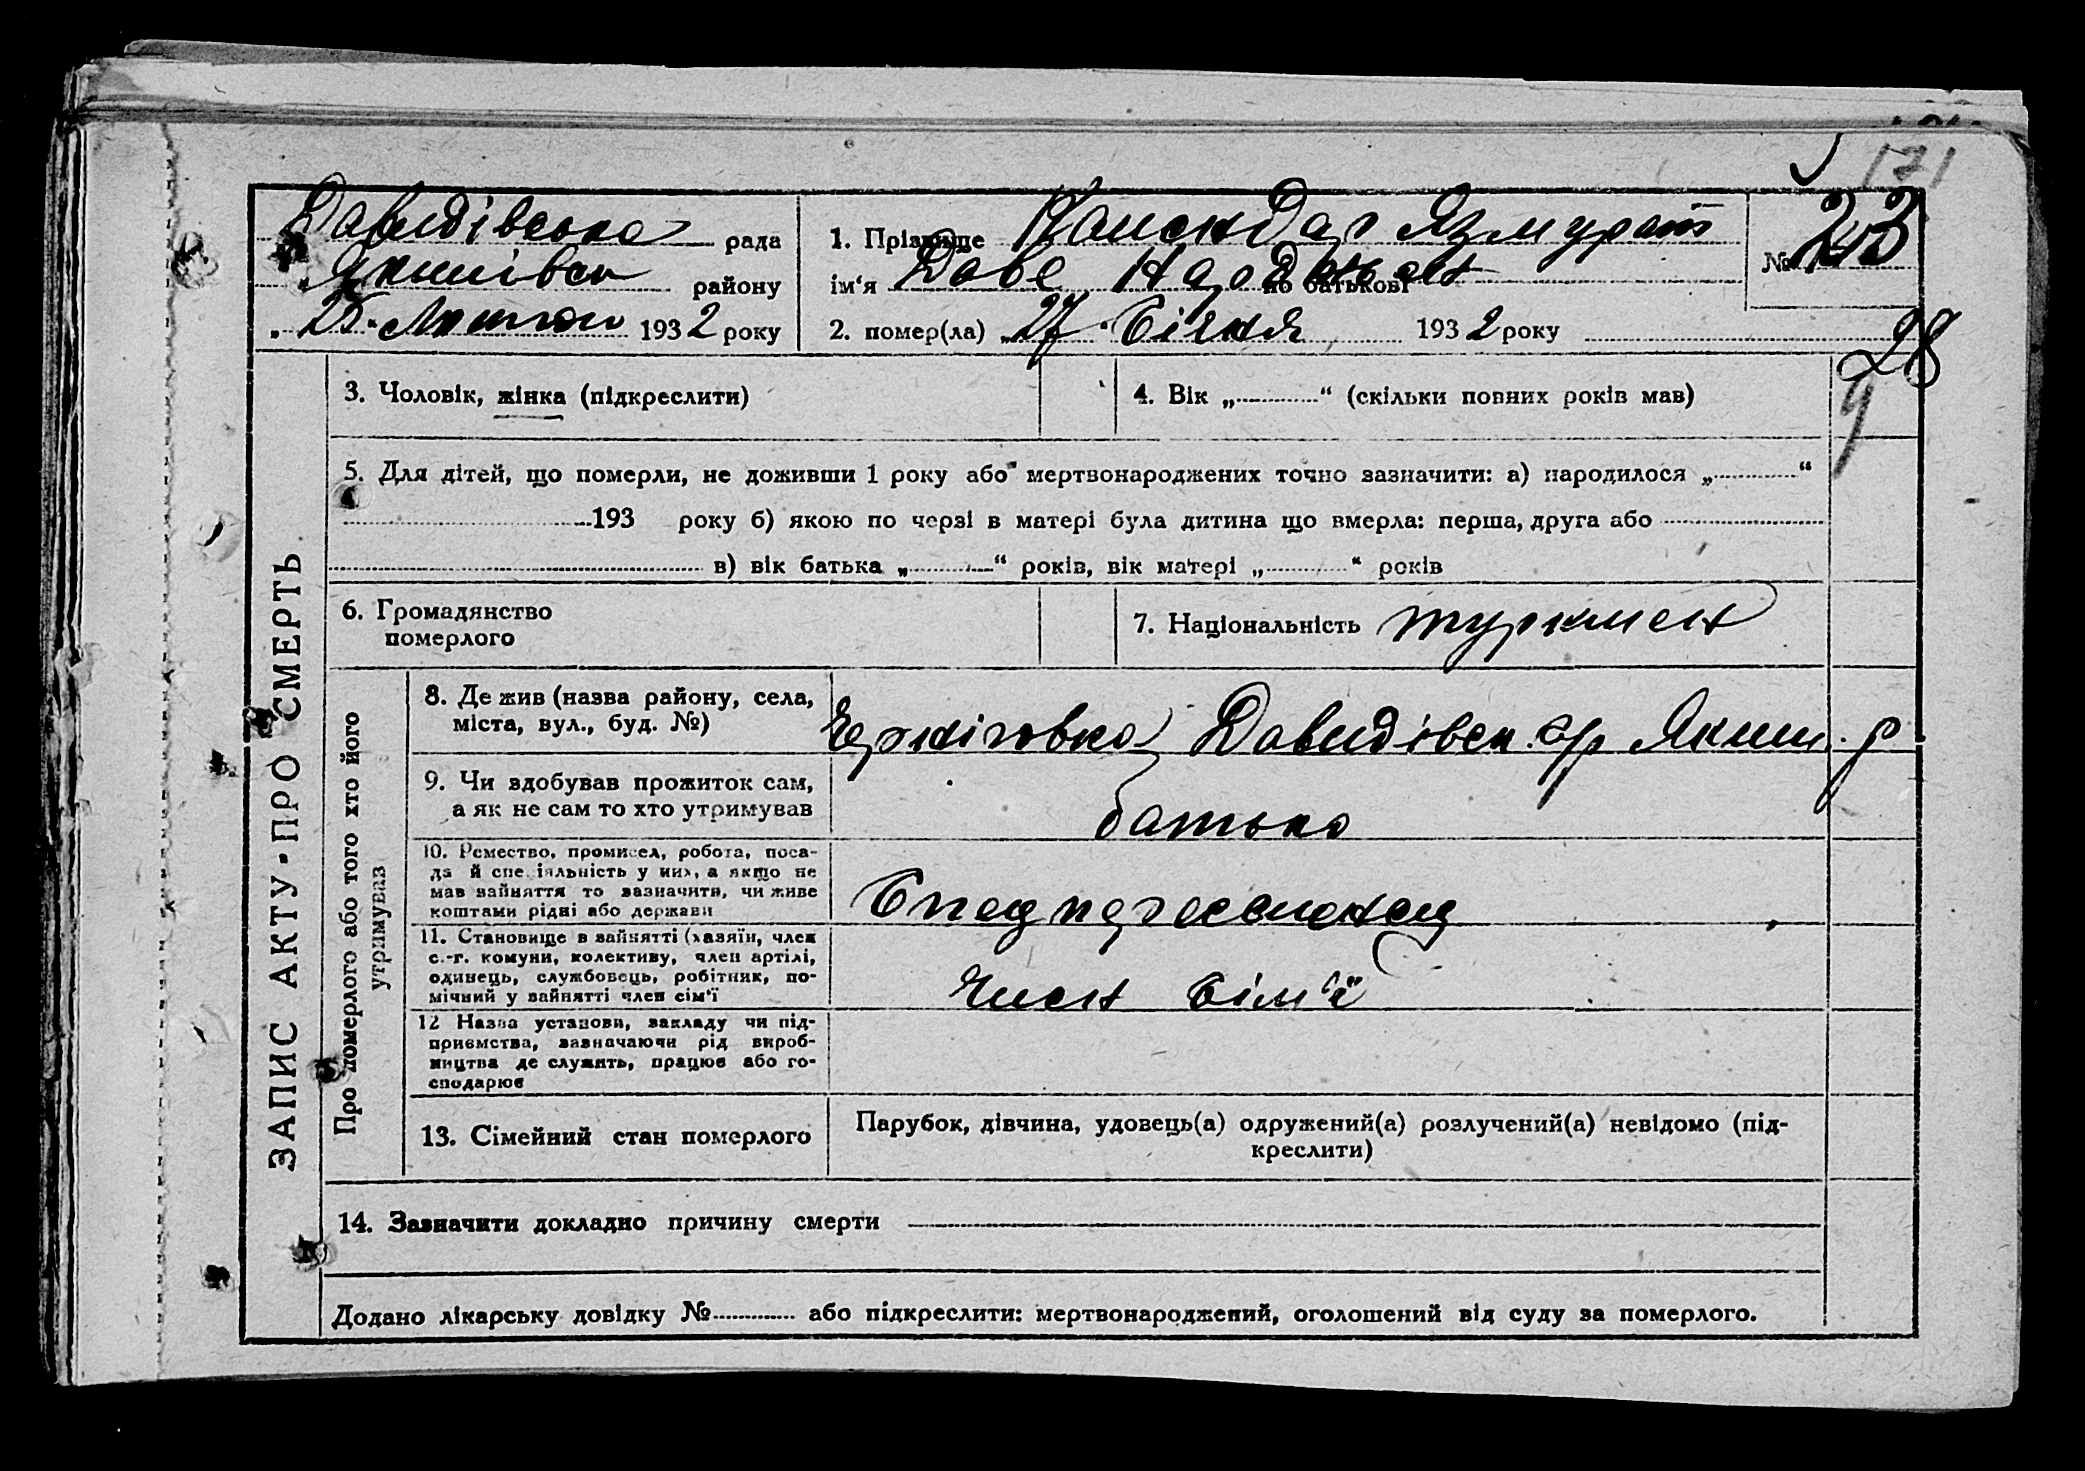 171
Давидівська рада
Якимівськ району
„25“ Лютого 1932 року
1. Прізвище Язмурат
ім‘я по батькові
2. помер(ла) „27“ Січня 1932 року
№ 23
28
3. Чоловік, жінка (підкреслити)
4. Вік „ “ (скільки повних років мав)
5. Для дітей, що померли, не доживши 1 року або мертвонароджених точно зазначити: а) народилося „ “
193 року б) якою по черзі в матері була дитина що вмерла: перша, друга або
в) вік батька „ “ років, вік матері „ “ років
6. Громадянство
померлого
7. Національність туркмен
ЗАПИС АКТУ-ПРО СМЕРТЬ
Про померлого або того хто його
утримував
8. Де жив (назва району, села,
міста, вул., буд. №)
Чернігівка Давидівськ. с/р Яким. р
9. Чи здобував прожиток сам,
а як не сам то хто утримував
батько
10. Ремество, промисел, робота, поса-
да й спеціяльність у них, а якщо не
мав зайняття то зазначити, чи живе
коштами рідні або держави
Спецпереселенец
11. Становище в зайнятті (хазяїн, член
с.-г. комуни, колективу, член артілі,
одинець, службовець, робітник, по-
мічний у зайнятті член сім‘ї
Член сім‘ї
12 Назва установи, закладу чи під-
приємства, зазначаючи рід вироб-
ництва де служить, працює або го-
сподарює
13. Сімейний стан померлого
Парубок, дівчина, удовець(а) одружений(а) розлучений(а) невідомо (під-
креслити)
14. Зазначити докладно причину смерти
Додано лікарську довідку № або підкреслити: мертвонароджений, оголошений від суду за померлого.